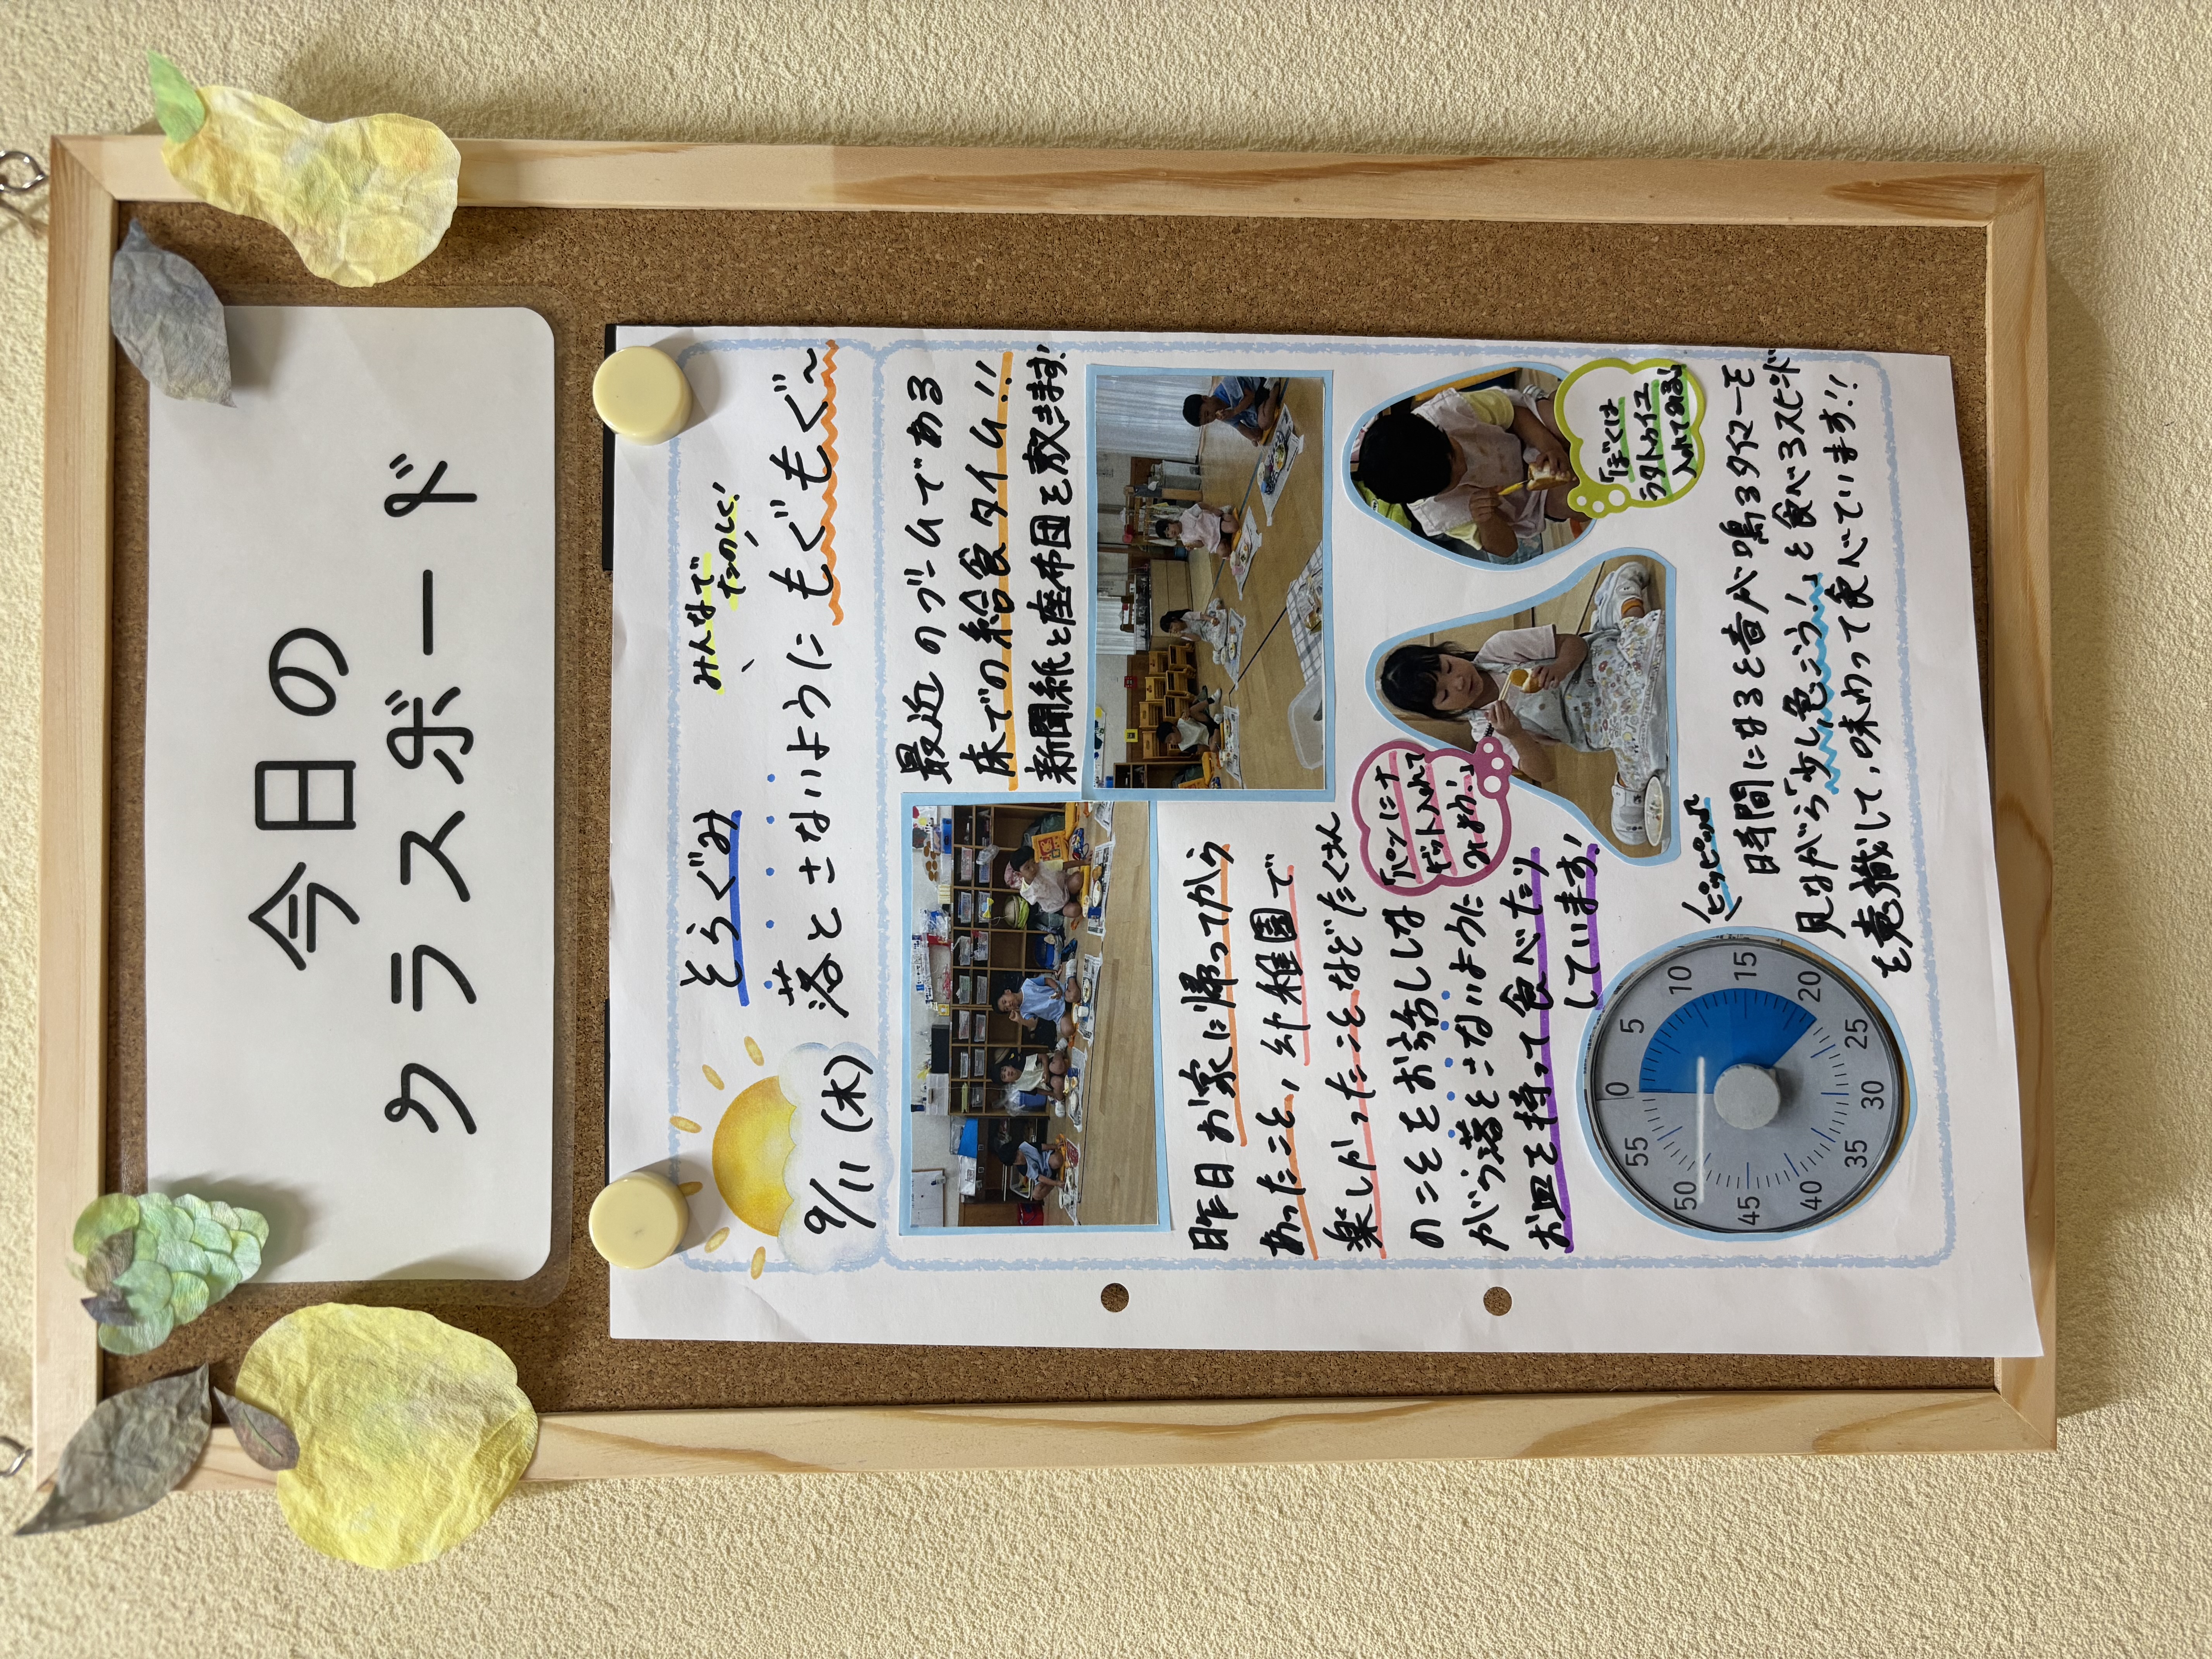 今日の
クラスボード
そらぐみ
みんなで
たのしく!
9/11(木)
落とさないように もぐもぐ~
最近のブームである
床での給食タイム!!
新聞紙と座布団を敷きます!
昨日お家に帰ってから
あったこと、幼稚園で
楽しかったことなどたくさん
のことをお話ししな
がら落とさないように
お皿を持って食べたり
しています!
「パンにナ
ゲット入れて
みよか!」
「ぼくは
ラタトゥイユ
入れてみる」
ピッピッ♪
0
5
10
15
20
25
30
35
40
45
50
55
時間になると音が鳴るタイマーを
見ながら「少し急ごう!」と食べるスピード
を意識して、味わって食べています!!